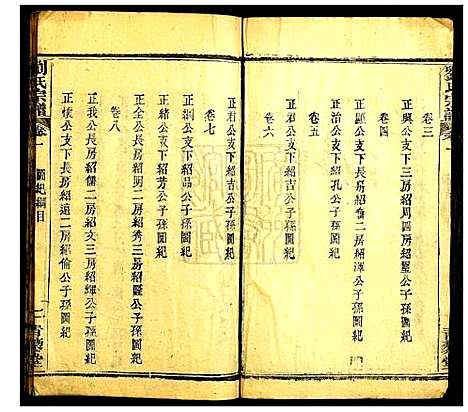 卷三
正興公支下長三房周四房紹聖公子孫圖紀
卷四
正顯公支下長房紹倫二房紹澤公子孫圖紀
正公支下紹孔公子孫圖紀
卷五
正君公支下紹吉公子孫圖紀
卷六
正君公支下紹吉公子孫圖紀
卷七
正綱公支下紹品公子孫圖紀
正全公長房紹明二房紹芳三房紹公子孫圖紀
卷八
正我公長房紹儒二房紹文三房紹輝公子孫圖紀
正懷公支下長房紹遠二房紹倫公子孫圖紀
劉氏宗譜
卷一
圖紀綱目
二
青藜堂